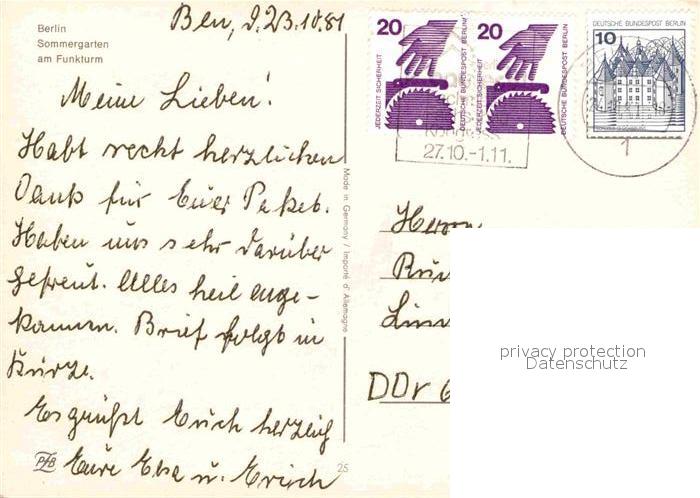 Berlin
Sommergarten
am Funkturm
Bln, d. 23.10.81
Meine Lieben!
Habt recht herzlichen
Dank für Euer Paket.
Haben uns sehr darüber
gefreut. Alles heil ange-
kommen. Brief folgt in
Kürze.
Es grüßt Euch herzlich
Eure Elsa u. Erich
PFB
25
Made in Germany / Importé d'Allemagne
20
JEDERZEIT SICHERHEIT
DEUTSCHE BUNDESPOST BERLIN
20
JEDERZEIT SICHERHEIT
DEUTSCHE BUNDESPOST BERLIN
DEUTSCHE BUNDESPOST BERLIN
10
27.10.-1.11.
1
Herrn
DDr 6
privacy protection
Datenschutz